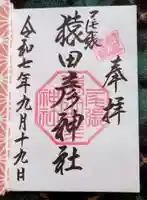 奉拝
尾張
猿田彦神社
令和七年九月十九日